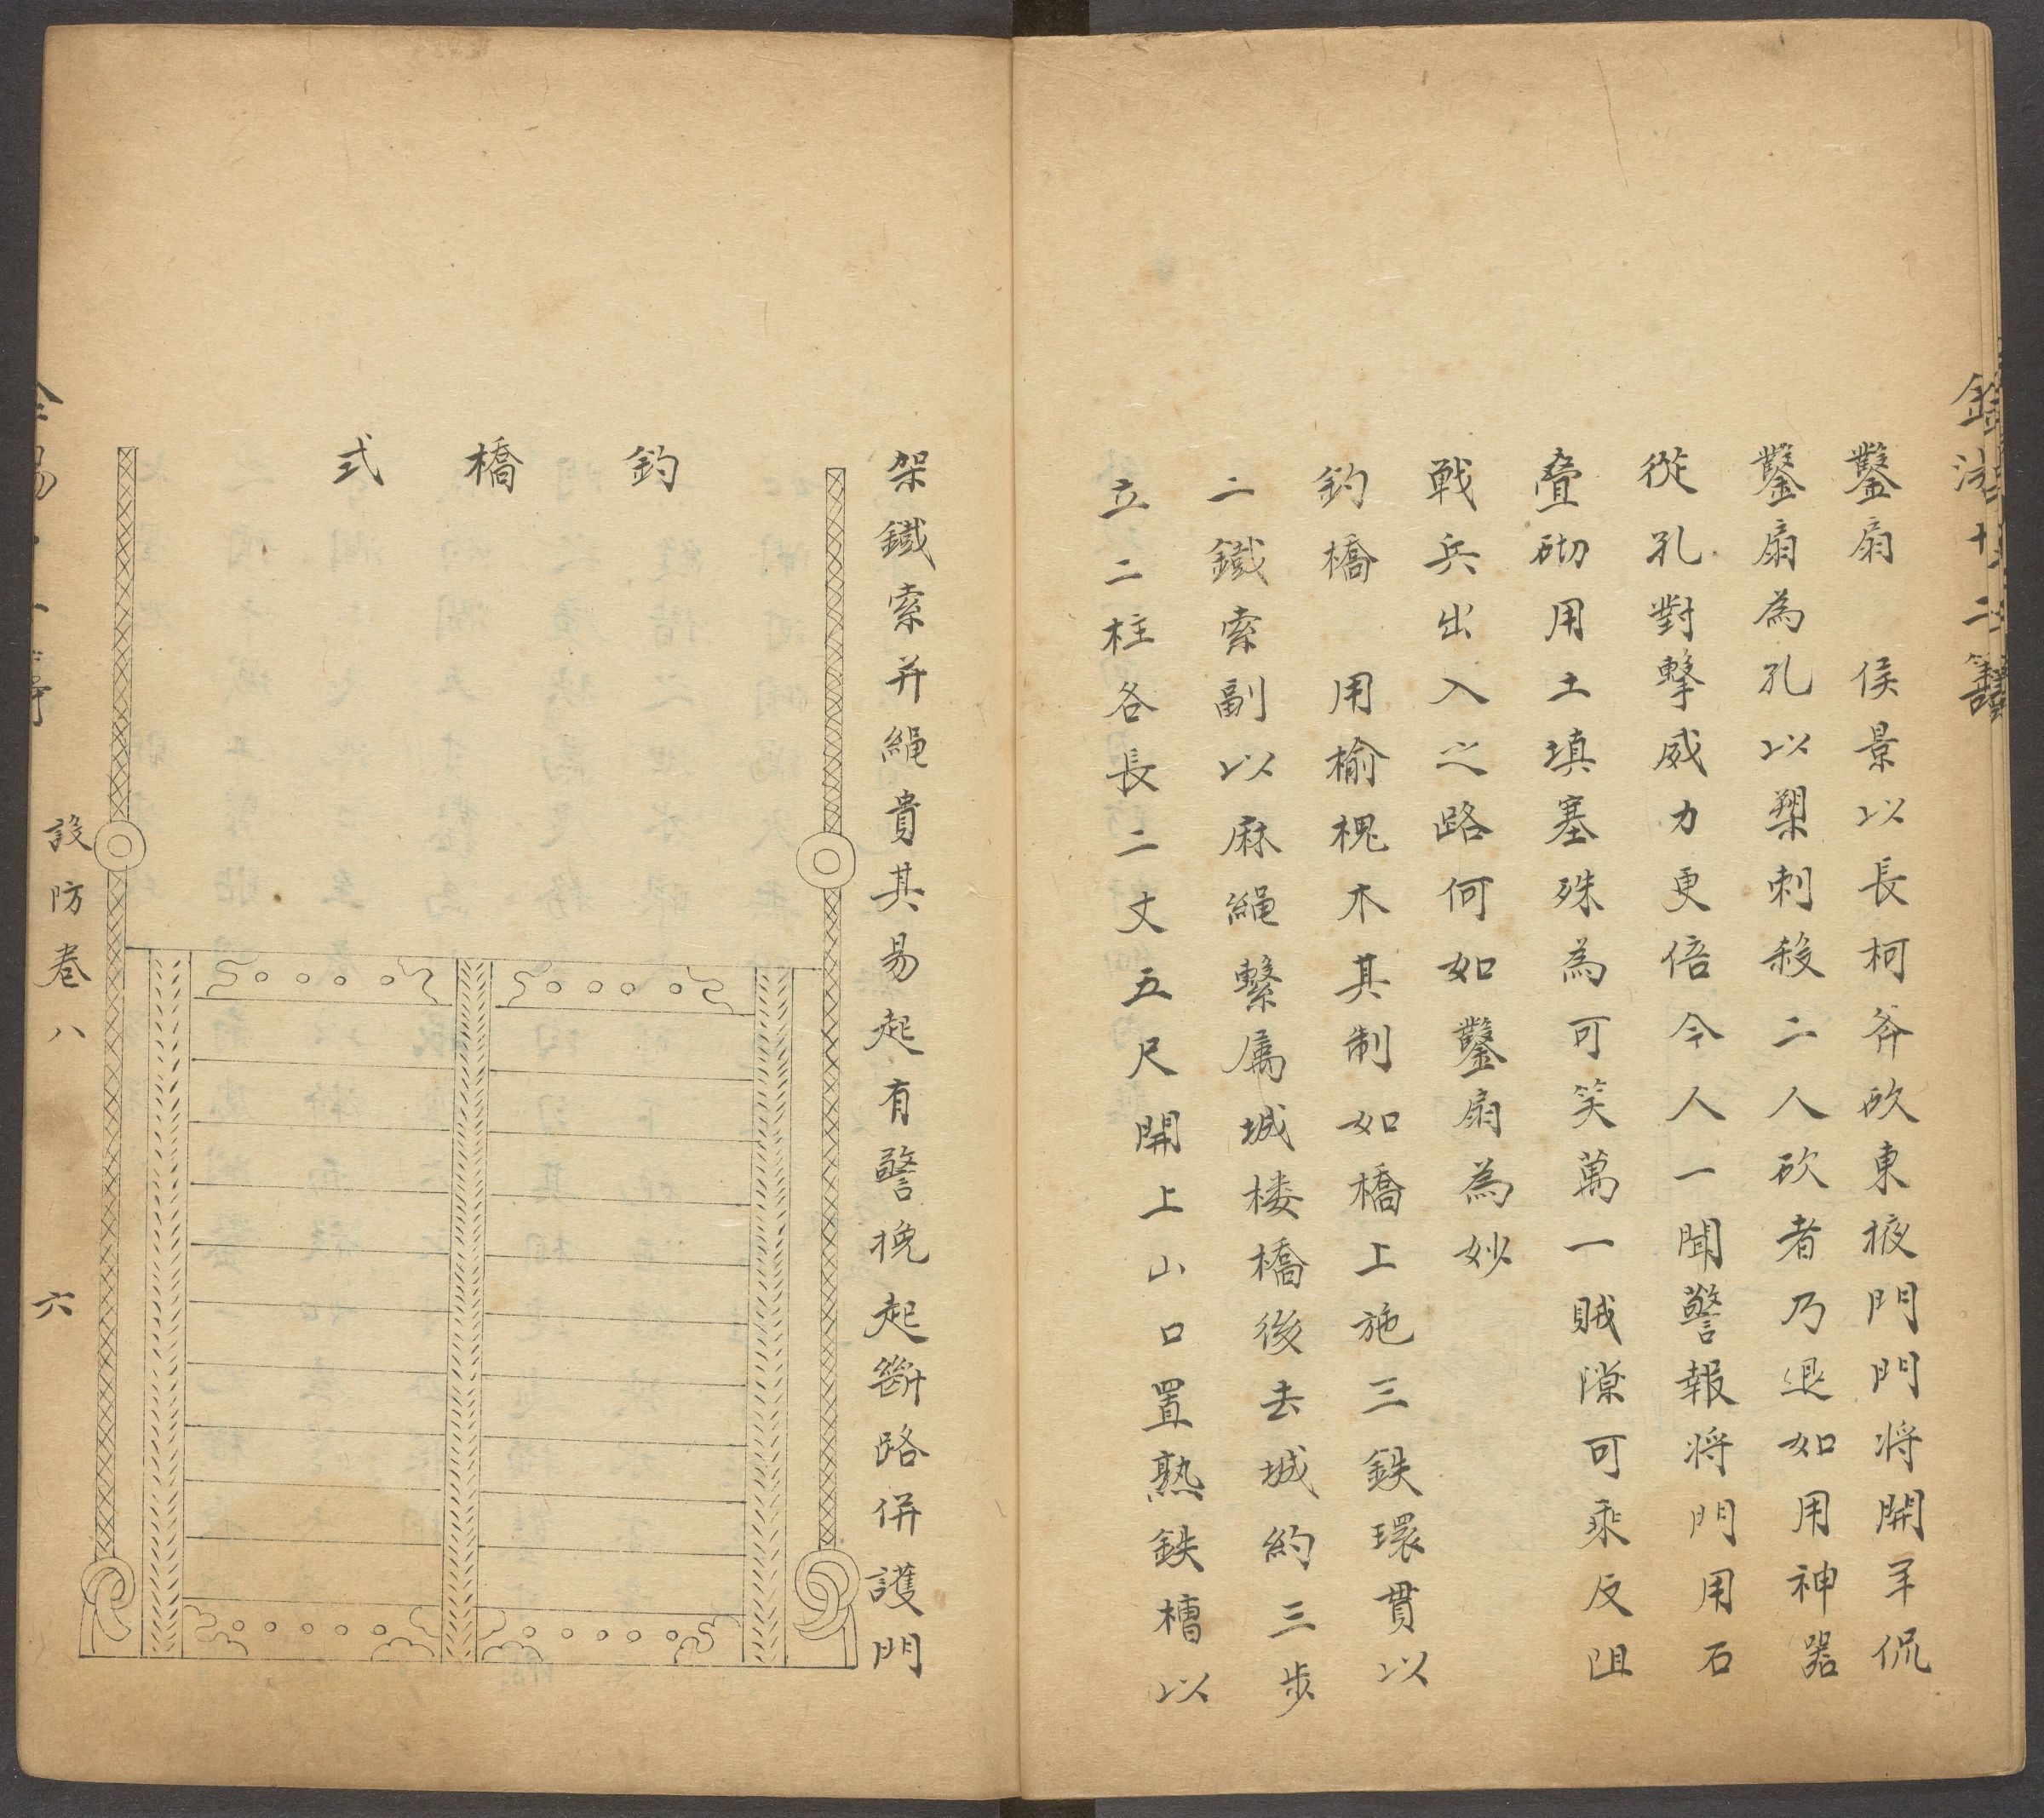 鑿扇　侯景以長柯斧砍東掖門門將開羊侃
鑿扇為孔以槊刺殺二人砍者乃退如用神器
從孔對擊威力更倍今人一聞警報將門用石
疊砌用土填塞殊為可笑萬一賊隙可乘反阻
戰兵出入之路何如鑿扇為妙
釣橋　用榆槐木其制如橋上施三鉄環貫以
二鐵索副以麻繩繫屬城楼橋後去城約三步
立二柱各長二丈五尺開上山口置熟鉄槽以
架鐵索并繩貴其易起有警挽起斷路併護門
釣橋式
設防卷八　六